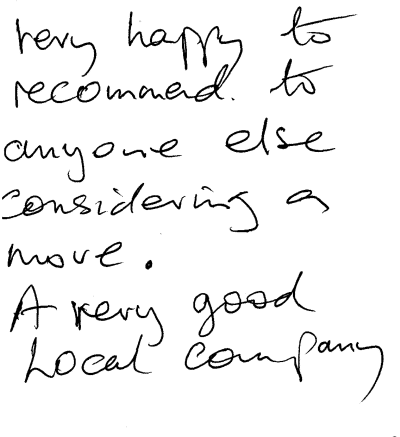 very happy to
recommend. to
anyone else
considering a
move.
A very good
Local company